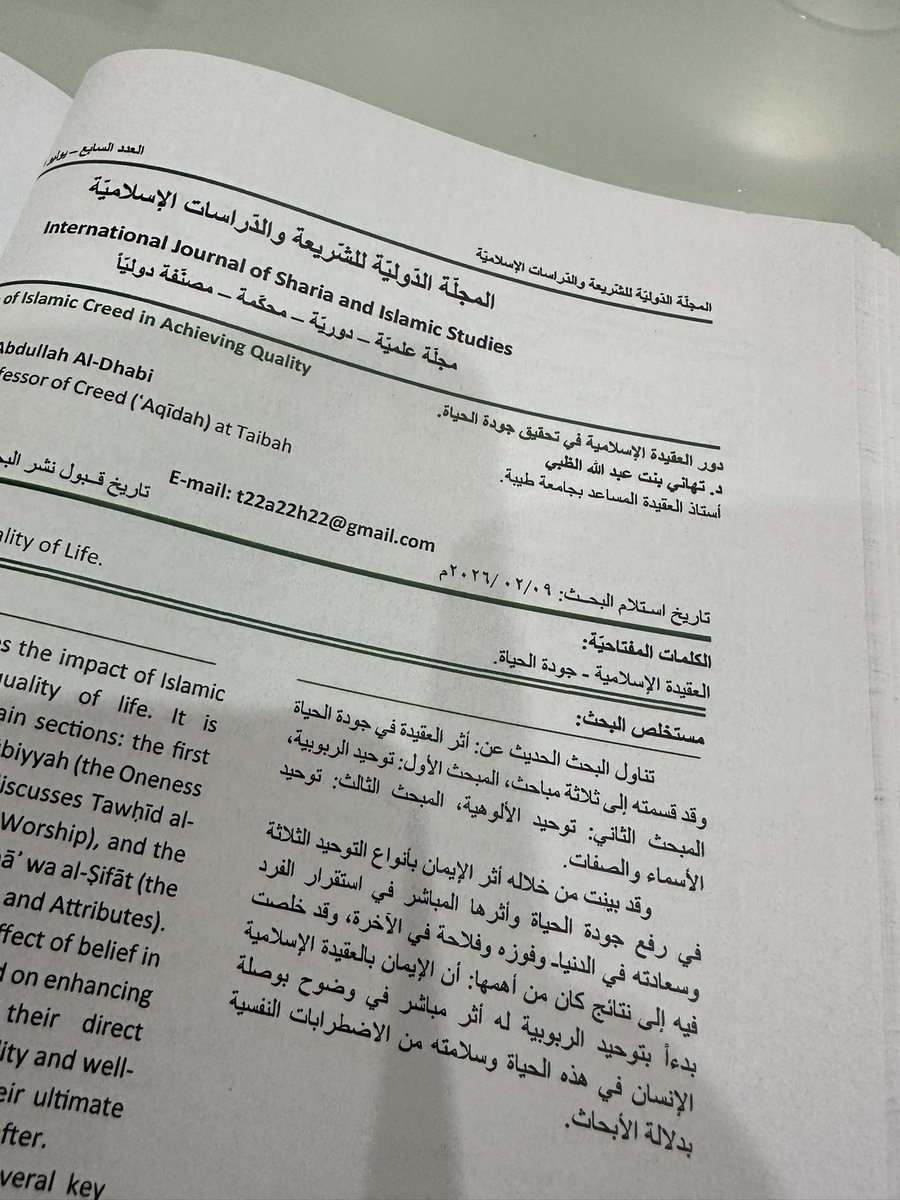 العدد السابع – يوليو
المجلّة الدّوليّة للشّريعة والدّراسات الإسلاميّة
المجلّة الدّوليّة للشّريعة والدّراسات الإسلاميّة
International Journal of Sharia and Islamic Studies
مجلّة علميّة – دوريّة – محكّمة – مصنّفة دوليّاً
of Islamic Creed in Achieving Quality
Abdullah Al-Dhabi
fessor of Creed (ʿAqīdah) at Taibah
E-mail: t22a22h22@gmail.com
دور العقيدة الإسلامية في تحقيق جودة الحياة.
د. تهاني بنت عبد الله الظبي
أستاذ العقيدة المساعد بجامعة طيبة.
تاريخ استلام البحث: ٠٢/٠٩ /٢٠٢٦م
تاريخ قبول نشر البح
ality of Life.
الكلمات المفتاحيّة:
العقيدة الإسلامية - جودة الحياة.
مستخلص البحث:
تناول البحث الحديث عن: أثر العقيدة في جودة الحياة
وقد قسمته إلى ثلاثة مباحث، المبحث الأول: توحيد الربوبية،
المبحث الثاني: توحيد الألوهية، المبحث الثالث: توحيد
الأسماء والصفات.
وقد بينت من خلاله أثر الإيمان بأنواع التوحيد الثلاثة
في رفع جودة الحياة وأثرها المباشر في استقرار الفرد
وسعادته في الدنيا۔ وفوزه وفلاحة في الآخرة، وقد خلصت
فيه إلى نتائج كان من أهمها: أن الإيمان بالعقيدة الإسلامية
بدءاً بتوحيد الربوبية له أثر مباشر في وضوح بوصلة
الإنسان في هذه الحياة وسلامته من الاضطرابات النفسية
بدلالة الأبحاث.
es the impact of Islamic
quality of life. It is
ain sections: the first
ūbiyyah (the Oneness
discusses Tawḥīd al-
Worship), and the
mā’ wa al-Ṣifāt (the
and Attributes).
ffect of belief in
d on enhancing
their direct
lity and well-
eir ultimate
fter.
veral key